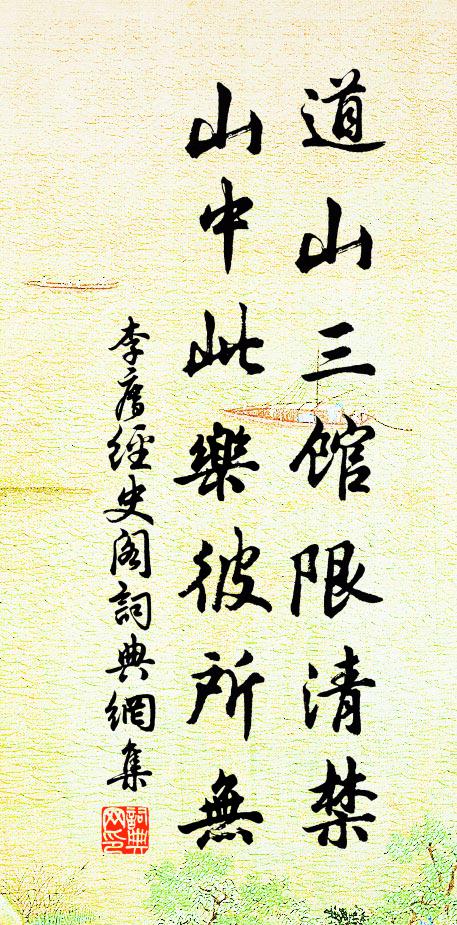 道山三館限清禁
山中此樂彼所無
李廌經史閣詞典網集
詞典網印